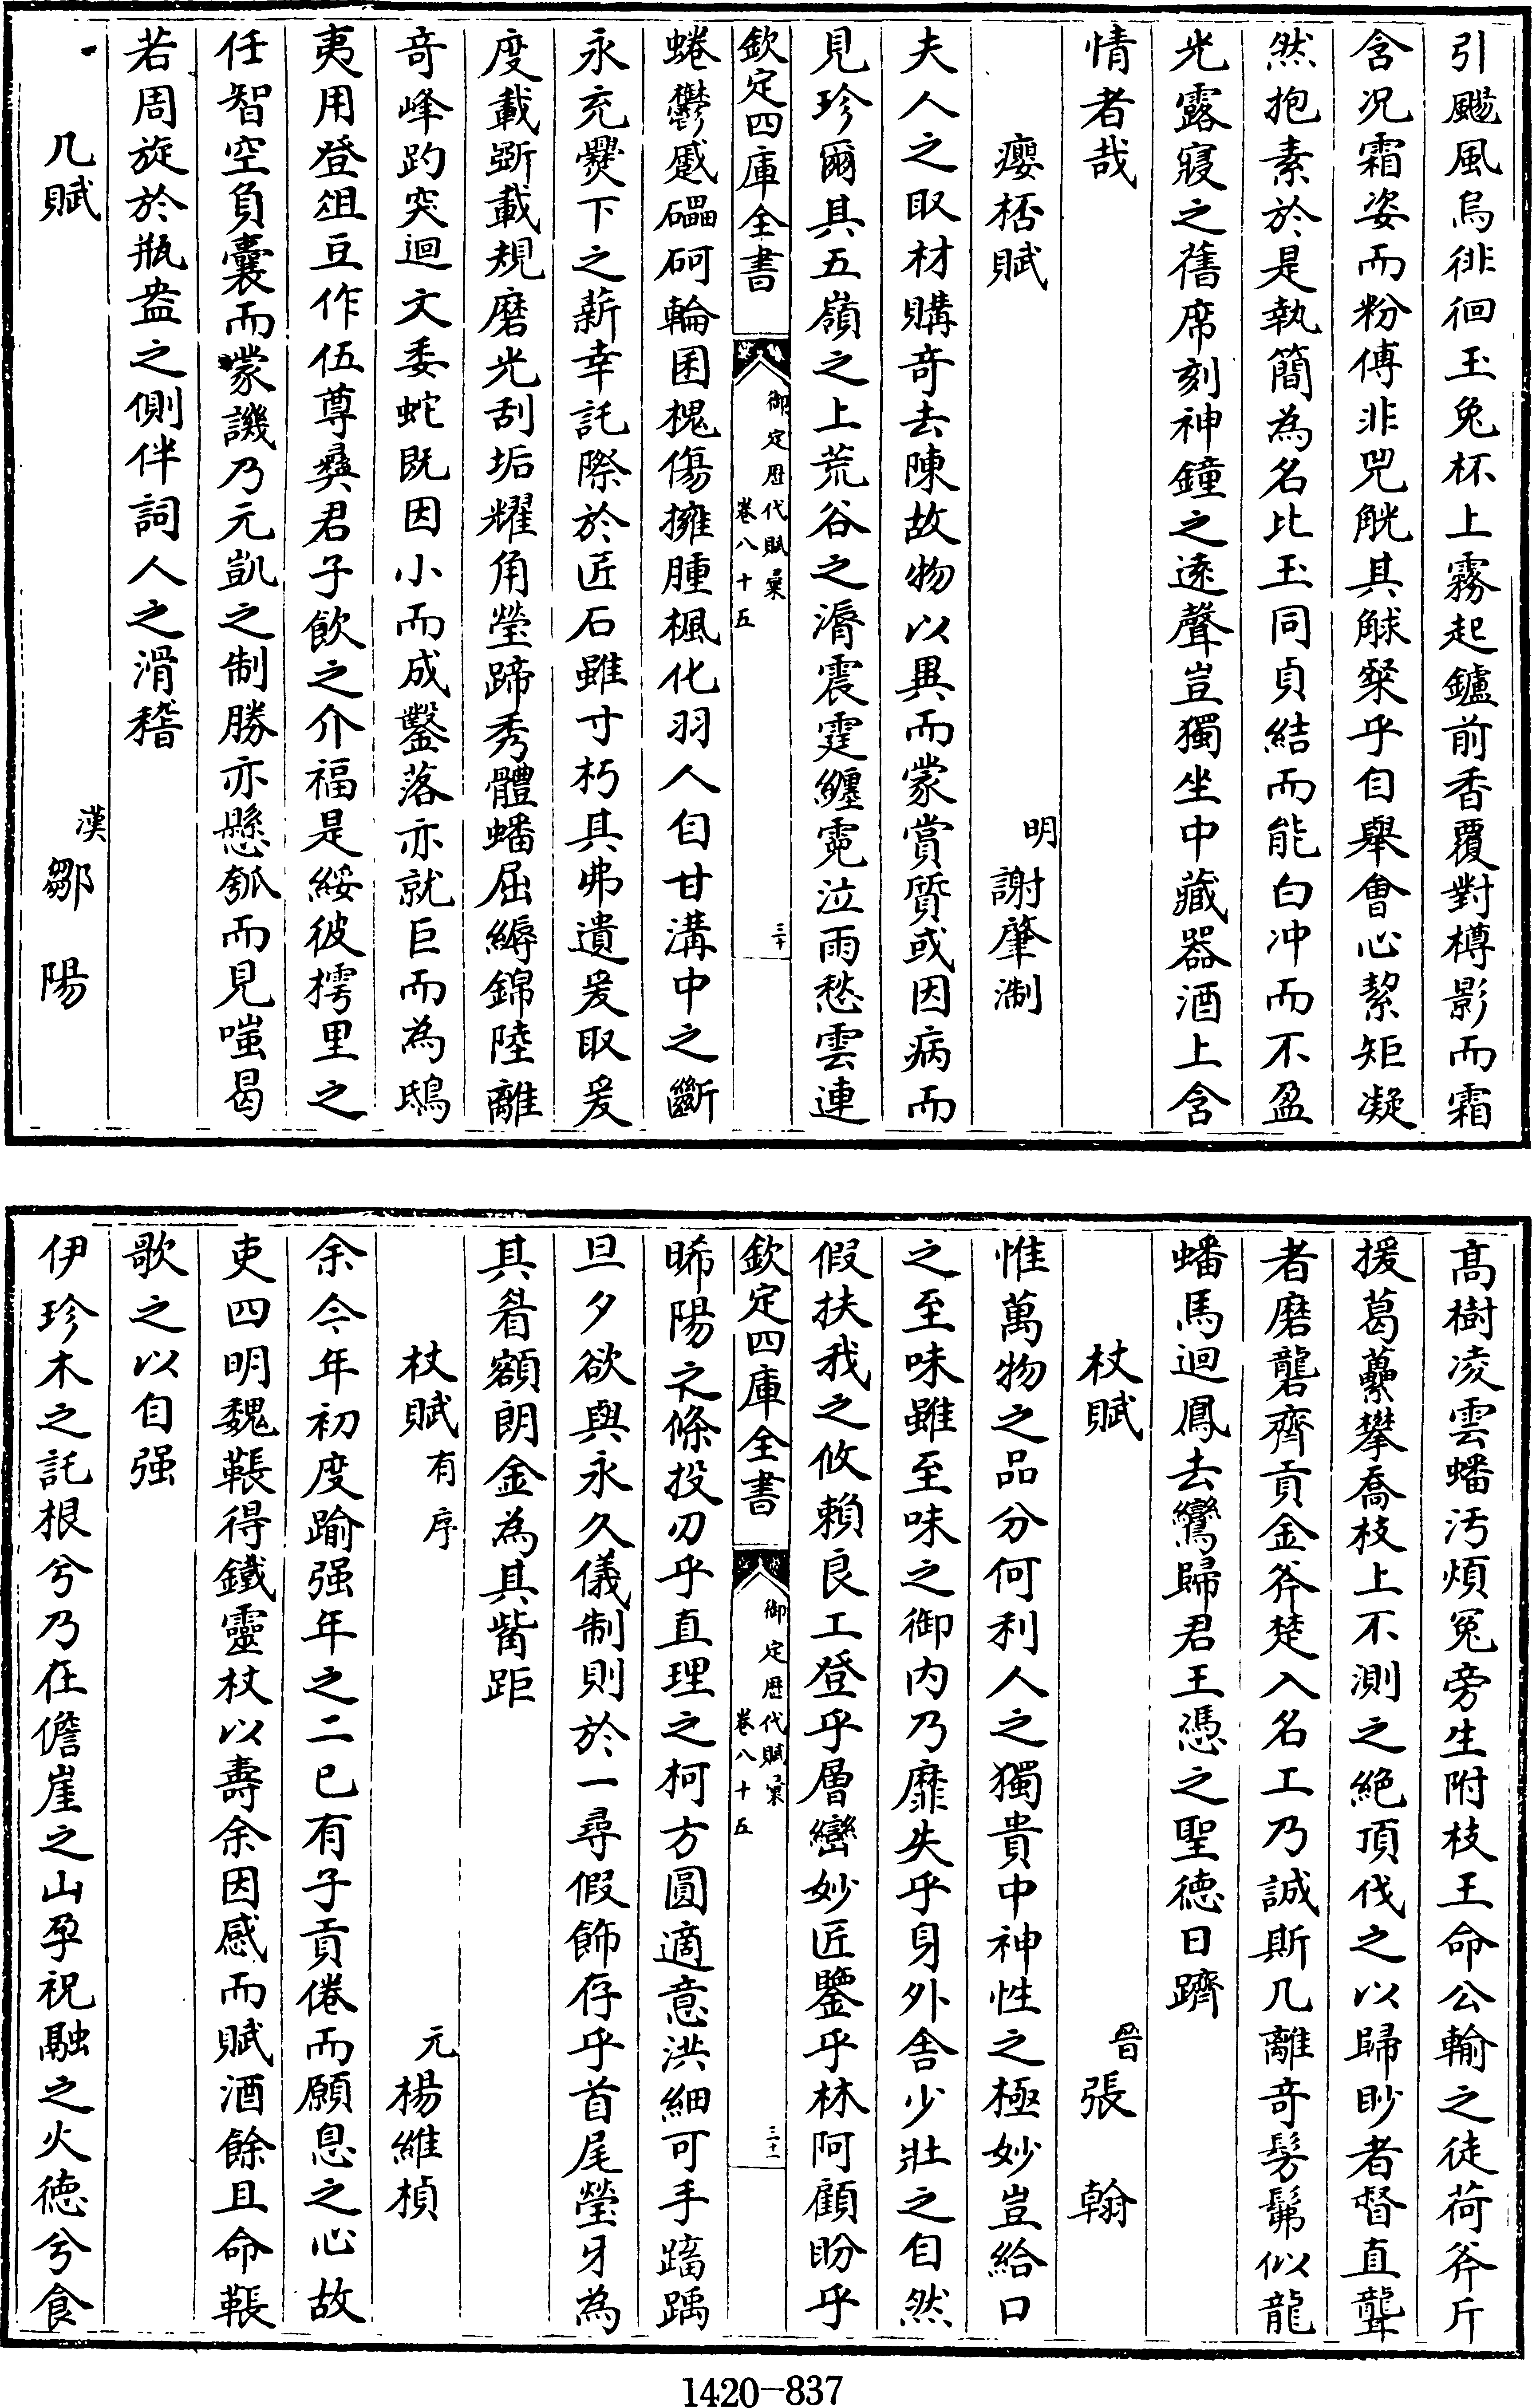 引颸風烏徘徊玉兔杯上霧起鑪前香覆對樽影而霜
含况霜姿而粉傅非兕觥其觩粲乎自舉會心絜矩凝
然抱素於是執簡為名比玉同貞結而能白冲而不盈
光露寢之舊席刻神鐘之遠聲豈獨坐中藏器酒上含
情者哉
癭桮賦
明
謝肇淛
夫人之取材購奇去陳故物以異而蒙賞質或因病而
見珍爾其五嶺之上荒谷之漘震霆纏霓泣雨愁雲連
欽定四庫全書
御定歴代賦彙
卷八十五
三十
蜷鬱蹙礧砢輪囷槐傷擁腫楓化羽人自甘溝中之斷
永充爨下之薪幸託際於匠石雖寸朽其弗遺爰取爰
度載斲載規磨光刮垢耀角瑩蹄秀體蟠屈縟錦陸離
奇峰趵突迴文委蛇既因小而成鑿落亦就巨而為鴟
夷用登俎豆作伍尊彝君子飲之介福是綏彼樗里之
任智空負囊而蒙譏乃元凱之制勝亦懸瓠而見嗤曷
若周旋於瓶盎之側伴詞人之滑稽
几賦
漢
鄒陽
髙樹凌雲蟠汚煩冤旁生附枝王命公輸之徒荷斧斤
援葛虆攀喬枝上不測之絶頂伐之以歸眇者督直聾
者磨礱齊貢金斧楚入名工乃誠斯几離奇髣髴似龍
蟠馬迴鳳去鸞歸君王憑之聖德日躋
杖賦
晉
張翰
惟萬物之品分何利人之獨貴中神性之極妙豈給口
之至味雖至味之御内乃靡失乎身外舍少壯之自然
假扶我之攸賴良工登乎層巒妙匠鑒乎林阿顧盼乎
欽定四庫全書
御定歴代賦彙
卷八十五
三十一
晞陽之條投刃乎直理之柯方圓適意洪細可手蹹踽
旦夕欲與永久儀制則於一尋假飾存乎首尾瑩牙為
其𥇒額朗金為其觜距
杖賦
有序
元
楊維楨
余今年初度踰强年之二已有子貢倦而願息之心故
吏四明魏䩨得鐵靈杖以壽余因感而賦酒餘且命䩨
歌之以自强
伊珍木之託根兮乃在儋崖之山孕祝融之火德兮食
1420-837